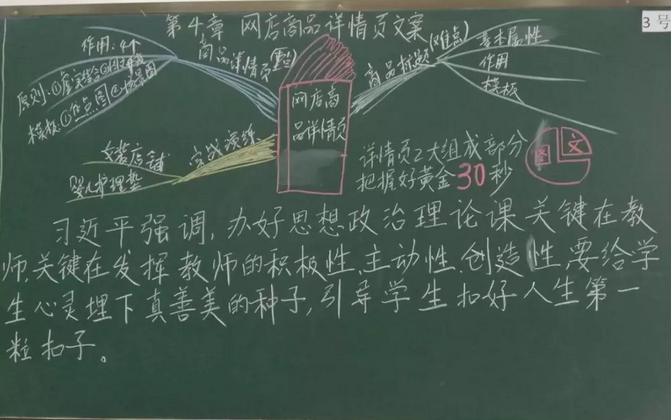 第4章 网店商品详情页文案
3号
作用:4个
商品详情页(重点)
原则:①
模板:①焦点图②场景图
实战演练
女装店铺
婴儿护理垫
网店商
品详情页
商品标题(难点)
基本属性
作用
模板
详情页2大组成部分
把握好黄金30秒
图 文
习近平强调,办好思想政治理论课关键在教
师,关键在发挥教师的积极性、主动性、创造性,要给学
生心灵埋下真善美的种子,引导学生扣好人生第一
粒扣子。